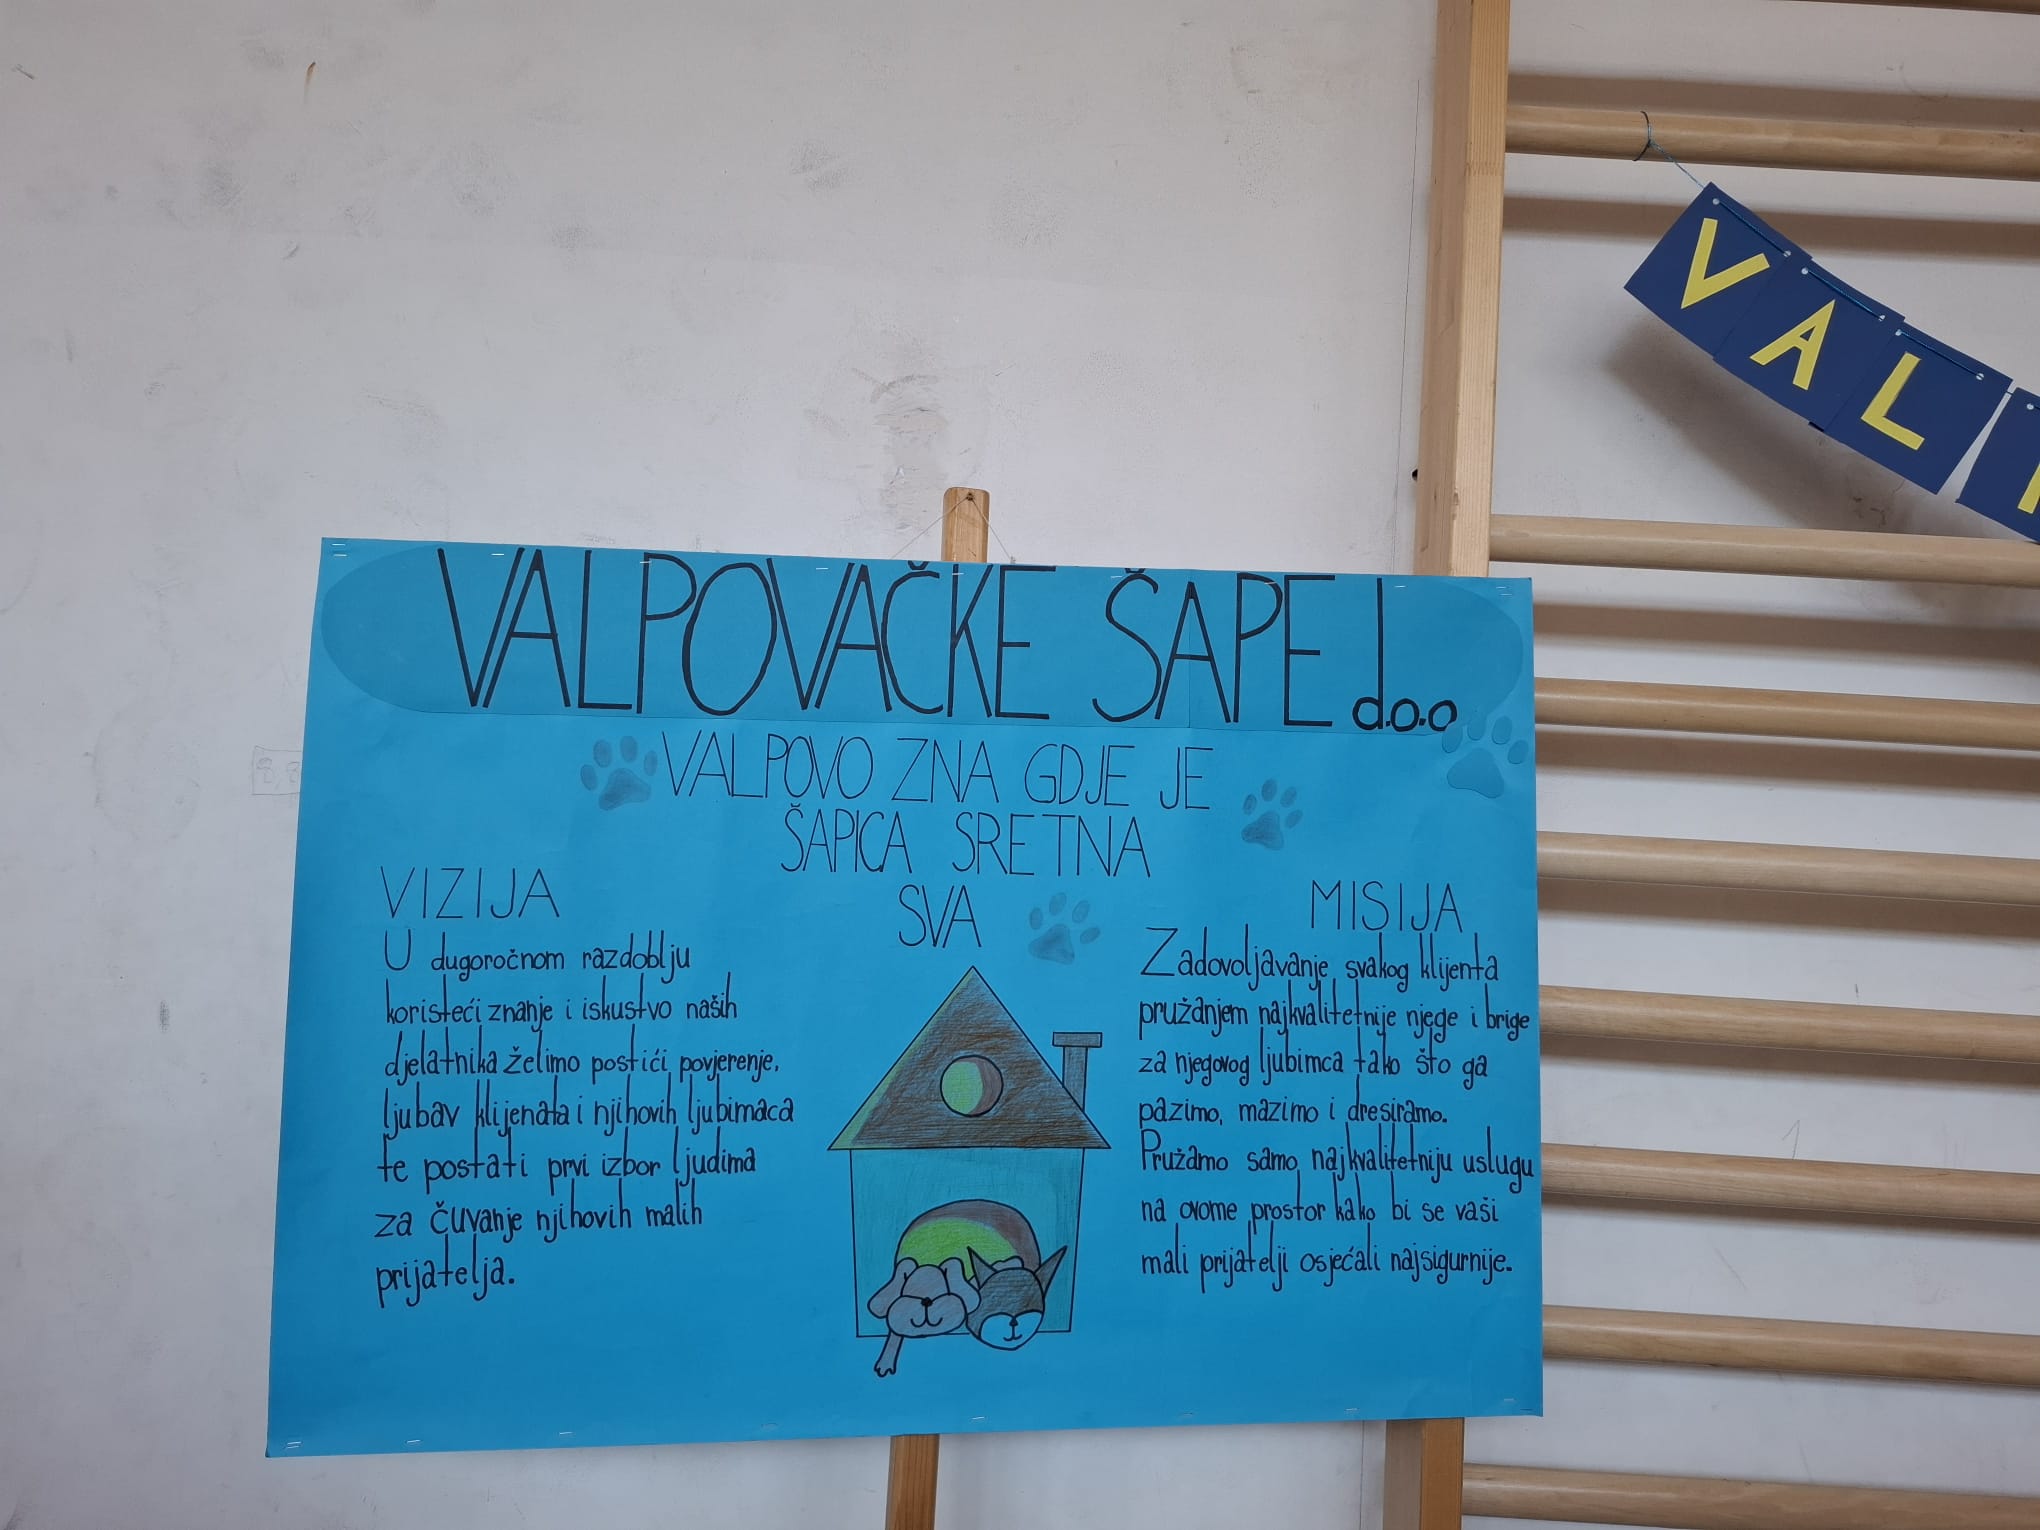 VALPOVAČKE ŠAPE J.
d.o.o
VALPOVO ZNA GDJE JE
ŠAPICA SRETNA
SVA
VIZIJA
U dugoročnom razdoblju
koristeći znanje i iskustvo naših
djelatnika želimo postići povjerenje,
ljubav klijenata i njihovih ljubimaca
te postati prvi izbor ljudima
za čuvanje njihovih malih
prijatelja.
MISIJA
Zadovoljavanje svakog klijenta
pružanjem najkvalitetnije njege i brige
za njegovog ljubimca tako što ga
pazimo, mazimo i dresiramo.
Pružamo samo najkvalitetniju uslugu
na ovome prostor kako bi se vaši
mali prijatelji osjećali najsigurnije.
VAL